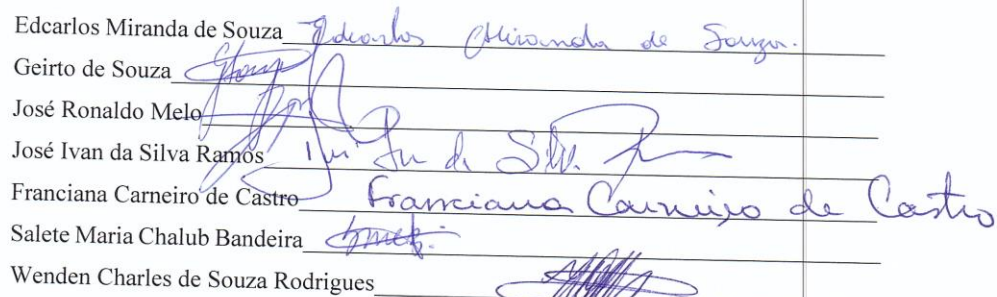 Edcarlos Miranda de Souza Edcarlos Miranda de Souza.
Geirto de Souza
José Ronaldo Melo
José Ivan da Silva Ramos
Franciana Carneiro de Castro Franciana Carneiro de Castro
Salete Maria Chalub Bandeira
Wenden Charles de Souza Rodrigues